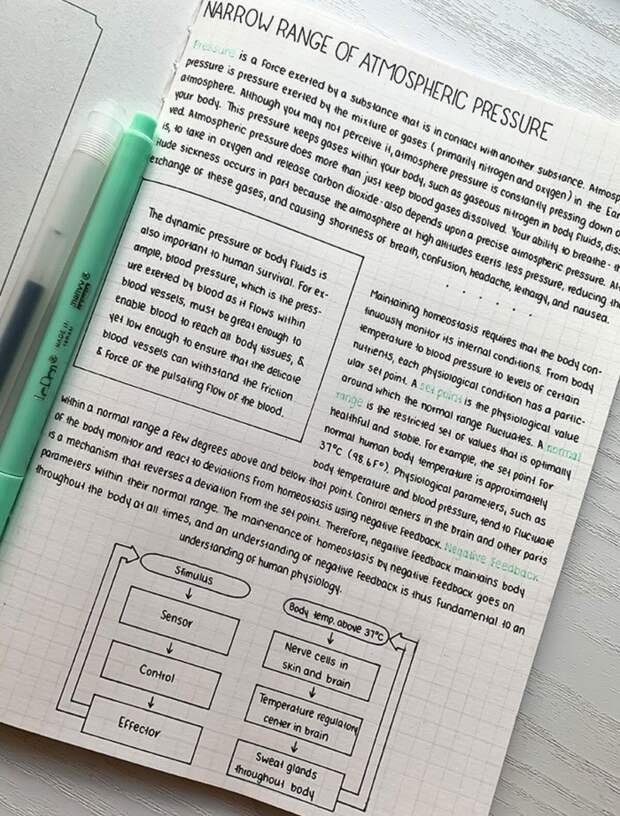 NARROW RANGE OF ATMOSPHERIC PRESSURE
Pressure is a force exerted by a substance that is in contact with another substance. Atmosp
pressure is pressure exerted by the mixture of gases (primarily nitrogen and oxygen) in the Ear
atmosphere. Although you may not perceive it, atmosphere pressure is constantly pressing down o
your body. This pressure keeps gases within your body, such as gaseous nitrogen in body fluids, diss
ved. Atmospheric pressure does more than just keep blood gases dissolved. Your ability to breathe - th
is, to take in oxygen and release carbon dioxide - also depends upon a precise atmospheric pressure. Al
itude sickness occurs in part because the atmosphere at high altitudes exerts less pressure, reducing the
exchange of these gases, and causing shortness of breath, confusion, headache, lethargy, and nausea.
The dynamic pressure of body fluids is
also important to human survival. For ex-
ample, blood pressure, which is the press-
ure exerted by blood as it flows within
blood vessels, must be great enough to
enable blood to reach all body tissues, &
yet low enough to ensure that the delicate
blood vessels can withstand the friction
& force of the pulsating flow of the blood.
Maintaining homeostasis requires that the body con-
tinuously monitor its internal conditions. From body
temperature to blood pressure to levels of certain
nutrients, each physiological condition has a partic-
ular set point. A set point is the physiological value
around which the normal range fluctuates. A normal
range is the restricted set of values that is optimally
healthful and stable. For example, the set point for
normal human body temperature is approximately
37°C (98.6F°). Physiological parameters, such as
body temperature and blood pressure, tend to fluctuate
within a normal range a few degrees above and below that point. Control centers in the brain and other parts
of the body monitor and react to deviations from homeostasis using negative feedback. Negative Feedback
is a mechanism that reverses a deviation from the set point. Therefore, negative feedback maintains body
parameters within their normal range. The maintenance of homeostasis by negative feedback goes on
throughout the body at all times, and an understanding of negative feedback is thus fundamental to an
understanding of human physiology.
Stimulus
Sensor
Control
Effector
Body temp. above 37°C
Nerve cells in
skin and brain
Temperature regulatory
center in brain
Sweat glands
throughout body
LePen